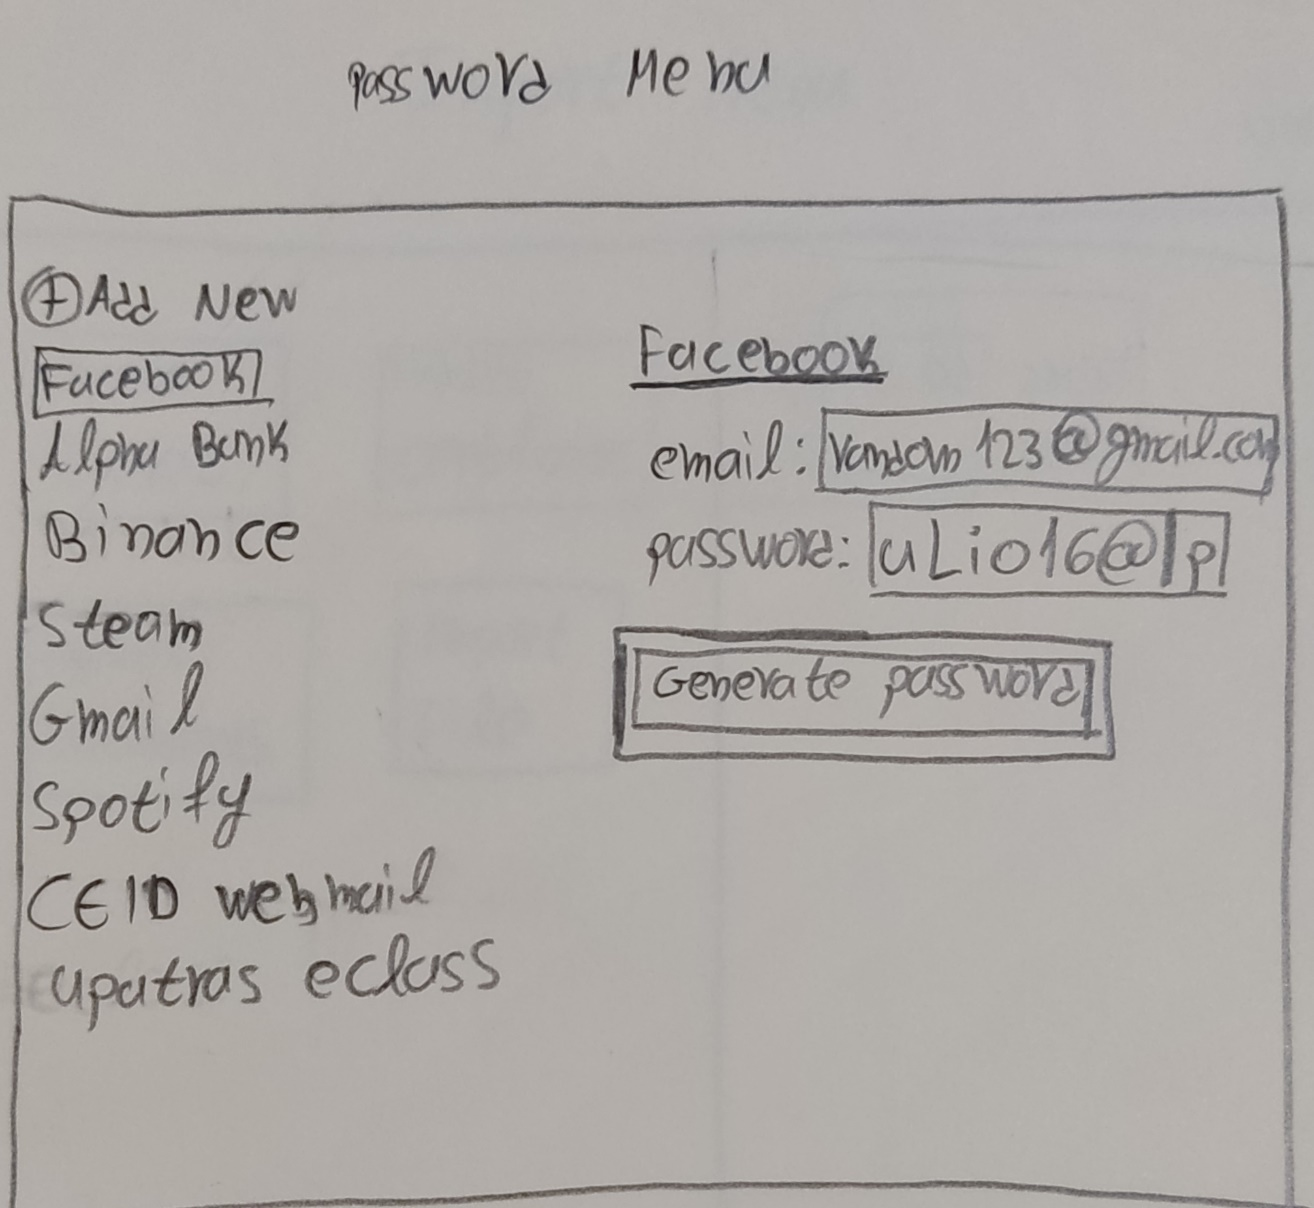 Password Menu
+ Add New
Facebook
Alpha Bank
Binance
Steam
Gmail
Spotify
CEID webmail
upatras eclass
Facebook
email: random123@gmail.com
password: uLio16@|p
Generate password